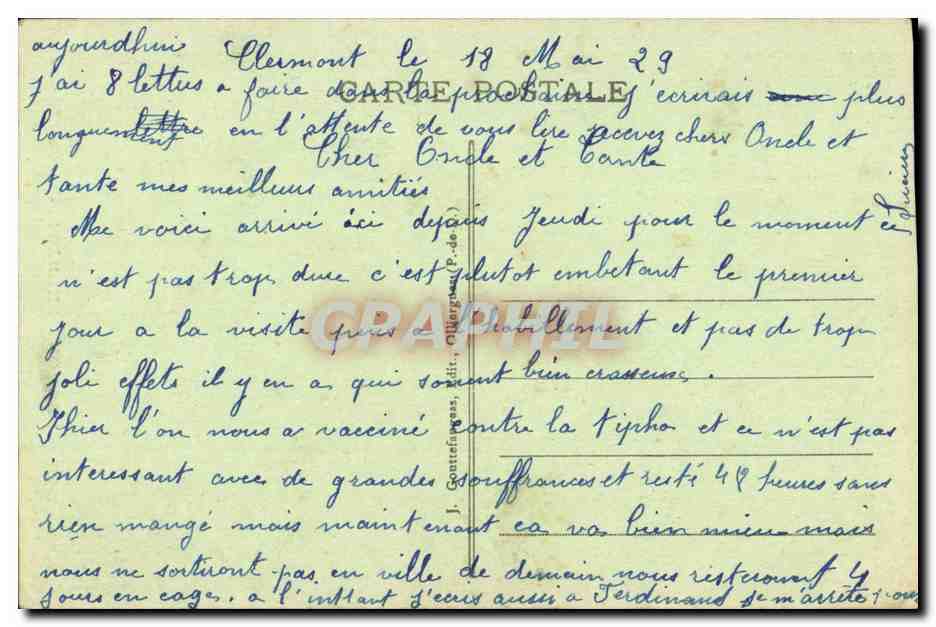 Clermont le 18 Mai 29
CARTE POSTALE
Cher Oncle et Tante
Me voici arrivé ici depuis Jeudi pour le moment ce
n'est pas trop dure c'est plutot embetant le premier
jour a la visite puis a l'habillement et pas de trop
joli effets il y en a qui soment bien crasseuse.
Ihier l'on nous a vacciné contre la tipho et ce n'est pas
interessant avec de grandes souffrances et resté 48 heures sans
rien mangé mais maintenant ca va bien mieu mais
nous ne sortiront pas en ville de demain nous resteront 4
jours en cage. a l'instant j'ecris aussi a Ferdinand je m'arrète pour
aujourdhui
j'ai 8 lettres a faire dans la prochaine j'ecrirais plus
longuement en l'attente de vous lire recevez chers Oncle et
tante mes meilleurs amitiés
Lucien
J. Gouttefangeas, Edit., Olliergues (P.-de-D.)
GRAPHIL